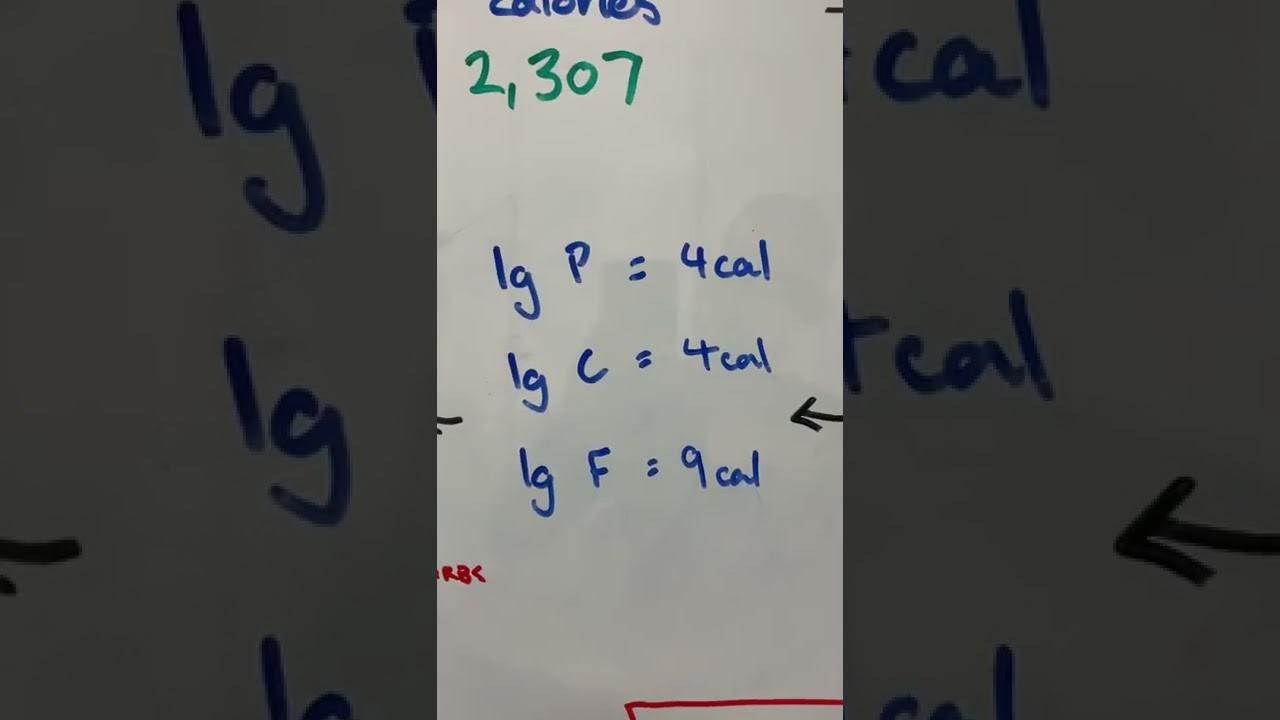 calories
2,307
1g P = 4cal
1g C = 4cal
1g F = 9cal